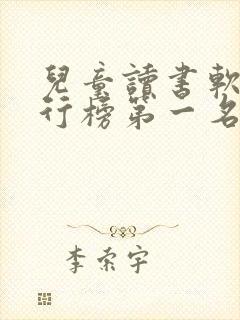 兒童讀書軟
行榜第一名
李索宇